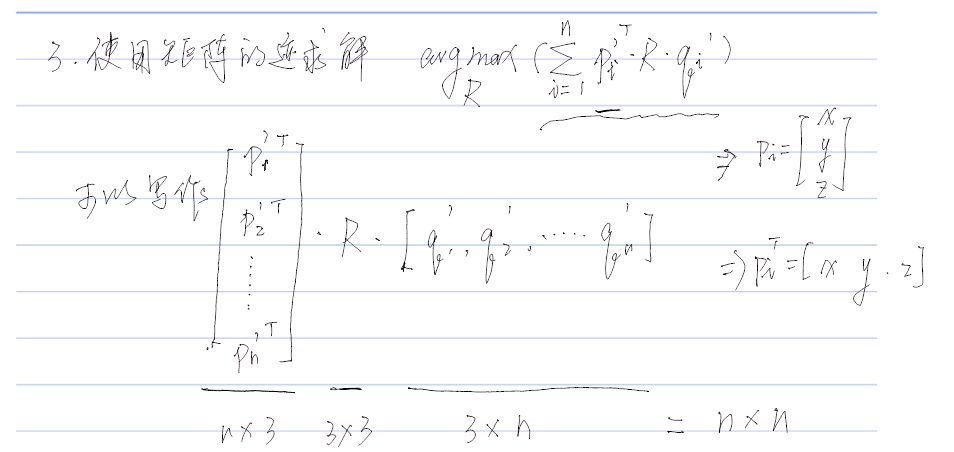 3. 使用矩阵的迹求解 arg max_R ( \sum_{i=1}^{n} p_i'^T · R · q_i' )
⇒ p_i = [x y z]
可以写作 [p_1'^T p_2'^T ⋮ p_n'^T] · R · [q_1', q_2', …… q_n']
⇒ p_i^T = [x y · z]
n×3 3×3 3×n = n×n